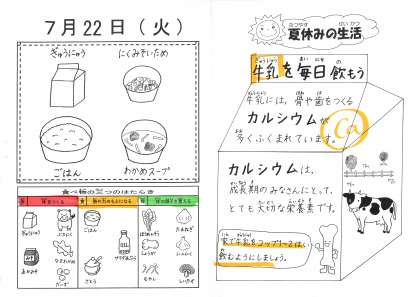 7月22日（火）
ぎゅうにゅう
にくみそいため
ごはん
わかめスープ
食べ物の三つのはたらき
ぎゅうにゅう
ぶたにく
ごはん
たまねぎ
みそ
さとう
しょうが
にんにく
もやし
なつやす
せいかつ
夏休みの生活
ぎゅうにゅう
まいにち
の
牛乳を毎日飲もう
牛乳には、骨や歯をつくる
カルシウムが
多くふくまれています。
Ca
カルシウムは、
成長期のみなさんにとって、
とても大切な栄養素です。
家で牛乳をコップ1～2はい
飲むようにしましょう。